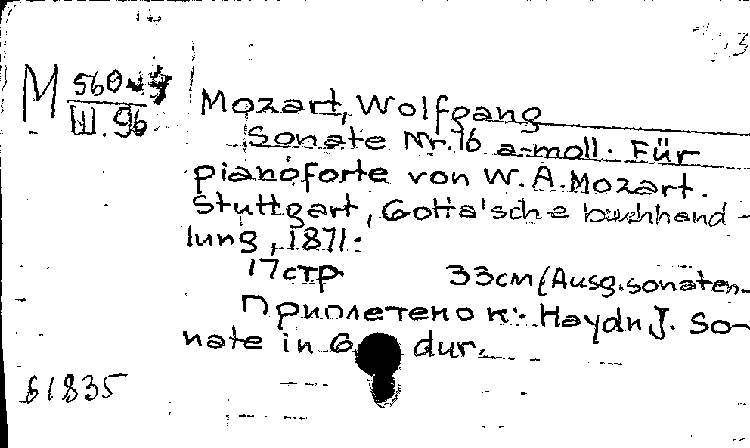 M 560
III.96
Mozart, Wolfgang
Sonate Nr.16 a-moll. Für
pianoforte von W.A.Mozart.
Stuttgart, Gotta'sche buchhand-
lung, 1871.
17стр. 33см (Ausg.sonaten-
Приплетено к: Haydn, J. So-
nate in G dur.
61835